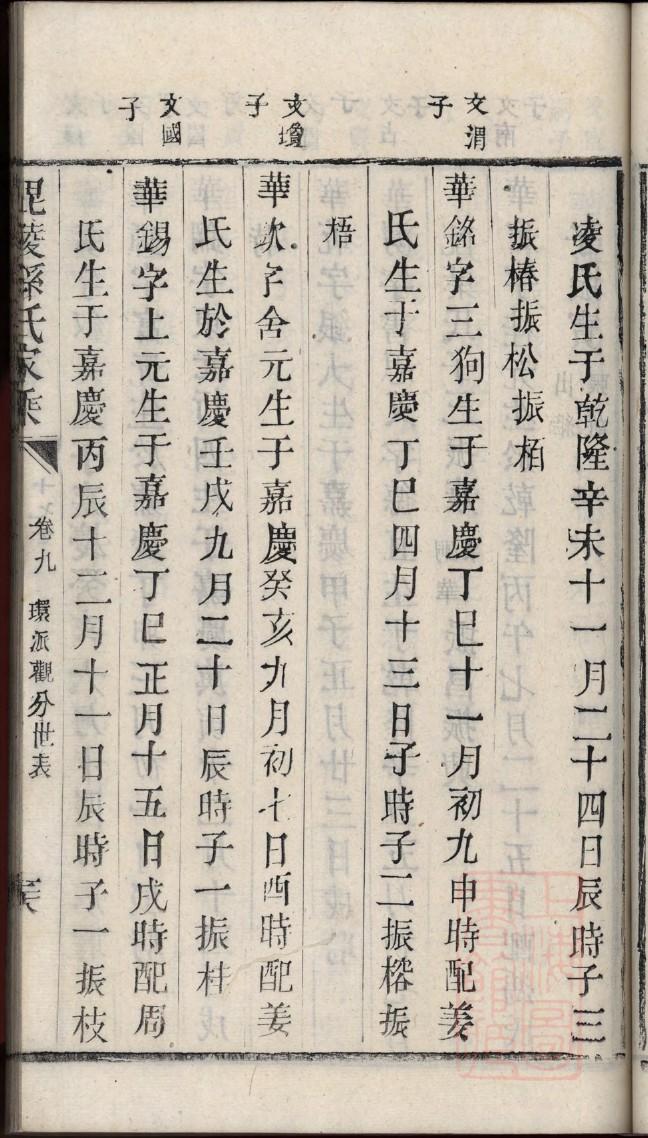 凌氏生于乾隆辛未十一月二十四日辰時子三
振椿振松振栢
文渭子
華銘字三狗生于嘉慶丁巳十一月初九申時配姜
氏生于嘉慶丁巳四月十三日子時子二振榕振
梧
文瓊子
華欽字舍元生于嘉慶癸亥九月初七日酉時配姜
氏生於嘉慶壬戌九月二十日辰時子一振桂
文國子
華錫字上元生于嘉慶丁巳正月十五日戌時配周
氏生于嘉慶丙辰十二月十一日辰時子一振枝
毘陵孫氏家乘
卷九 環派觀分世表